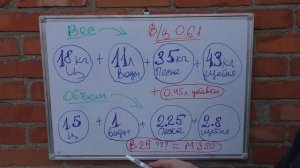 Вес В/Ц 0.61
18кг Ц + 11л Воды + 35кг Песка + 43кг Щебня
+ 0.45л добавки
Объем
1.5 Ц + 1 воды + 2.25 Песка + 2.8 щебня
В28 ??? ≈ М350